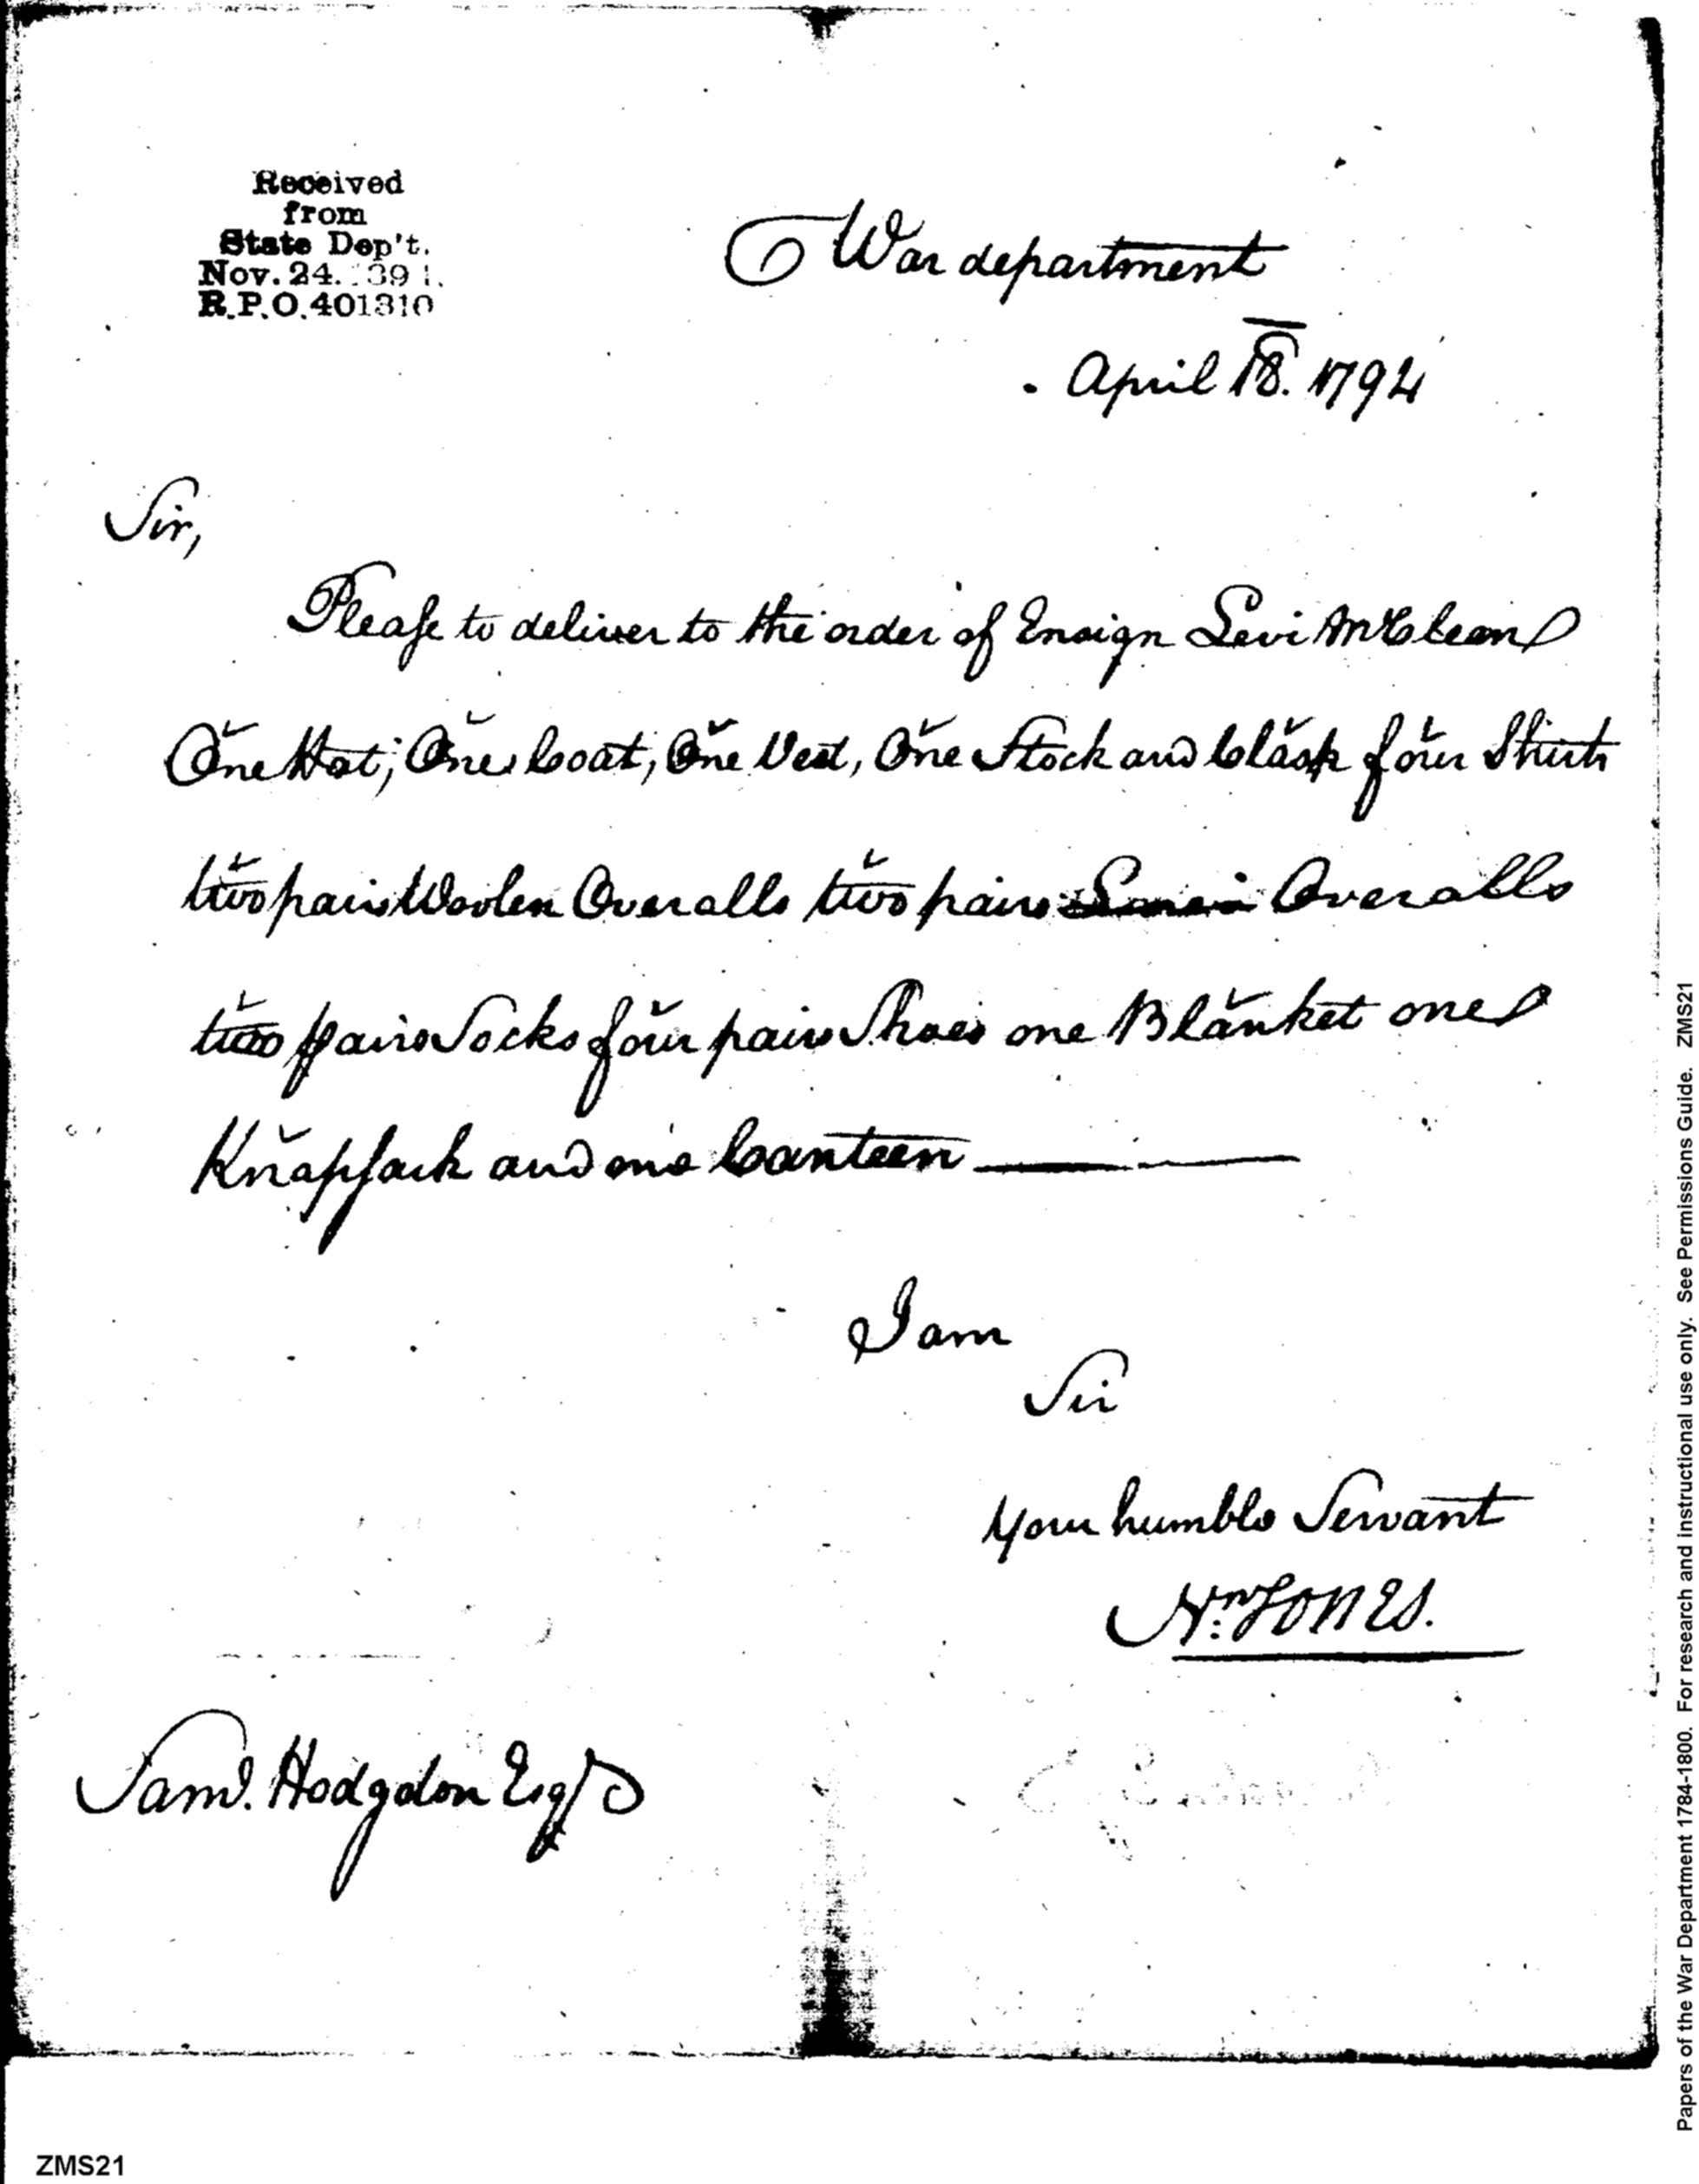 Received
from
State Dep't.
Nov. 24. 1891.
R.P.O. 401310
War department
April 18. 1794
Sir,
Please to deliver to the order of Ensign Levi McClean
One Hat; One Coat, One Vest, One Stock and Clasp four Shirts
two pairs Woolen Overalls two pairs Overalls
two pairs Socks four pairs Shoes one Blanket one
Knapsack and one Canteen
I am
Sir
Your humble Servant
Jn° JONES.
Saml. Hodgdon Esqr
ZMS21
Papers of the War Department 1784-1800. For research and instructional use only. See Permissions Guide. ZMS21